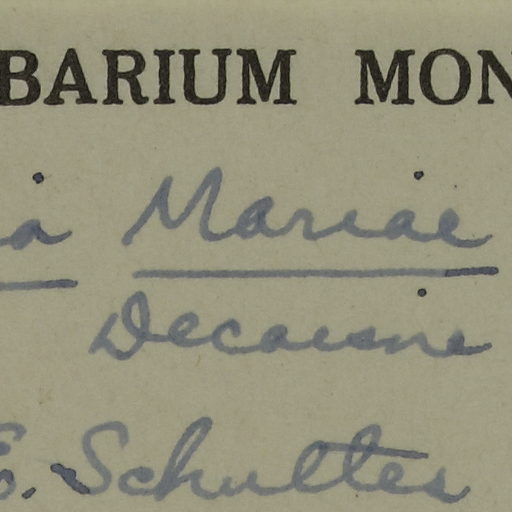 BARIUM MON
ia Mariae
Decaisne
E. Schultes